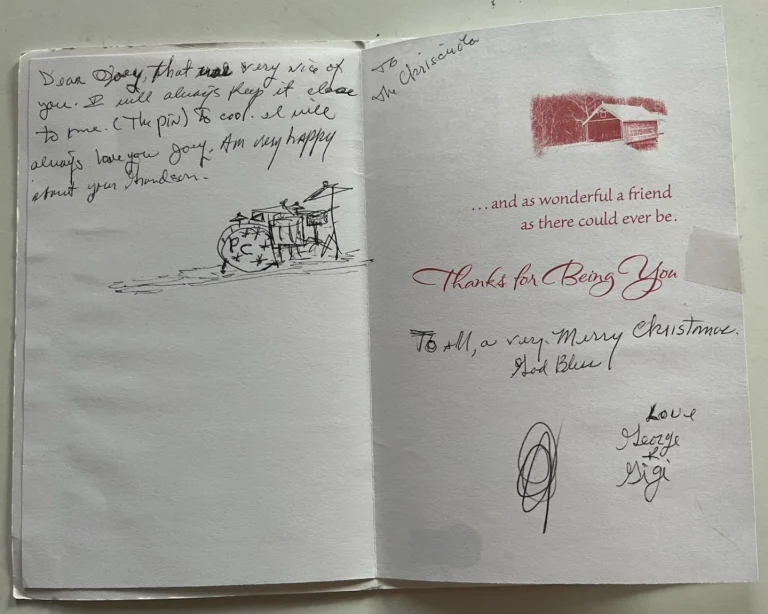 Dear Joey, that was very nice of
you. I will always keep it close
to me. (The pin) Is cool. I will
always love you Joey. Am very happy
about your Grandson.
PC
To
the Chriscuola
...and as wonderful a friend
as there could ever be.
Thanks for Being You
To All, a very Merry Christmas.
God Bless
Love
George
&
Gigi